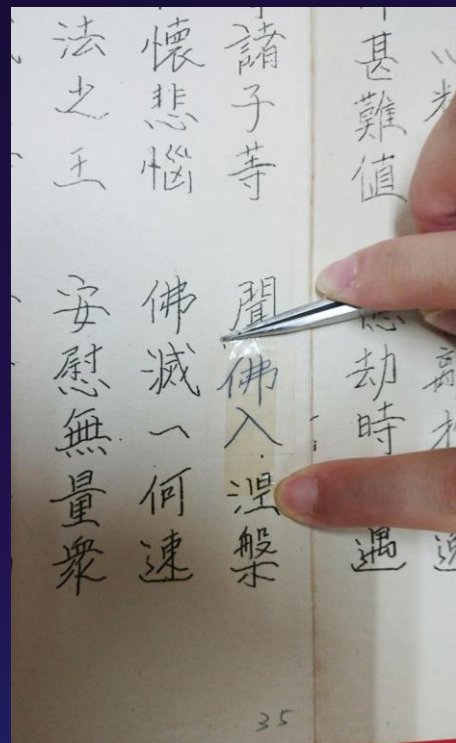 甚難值 劫時遇
諸子等 聞佛入涅槃
懷悲惱 佛滅一何速
法之王 安慰無量衆
35